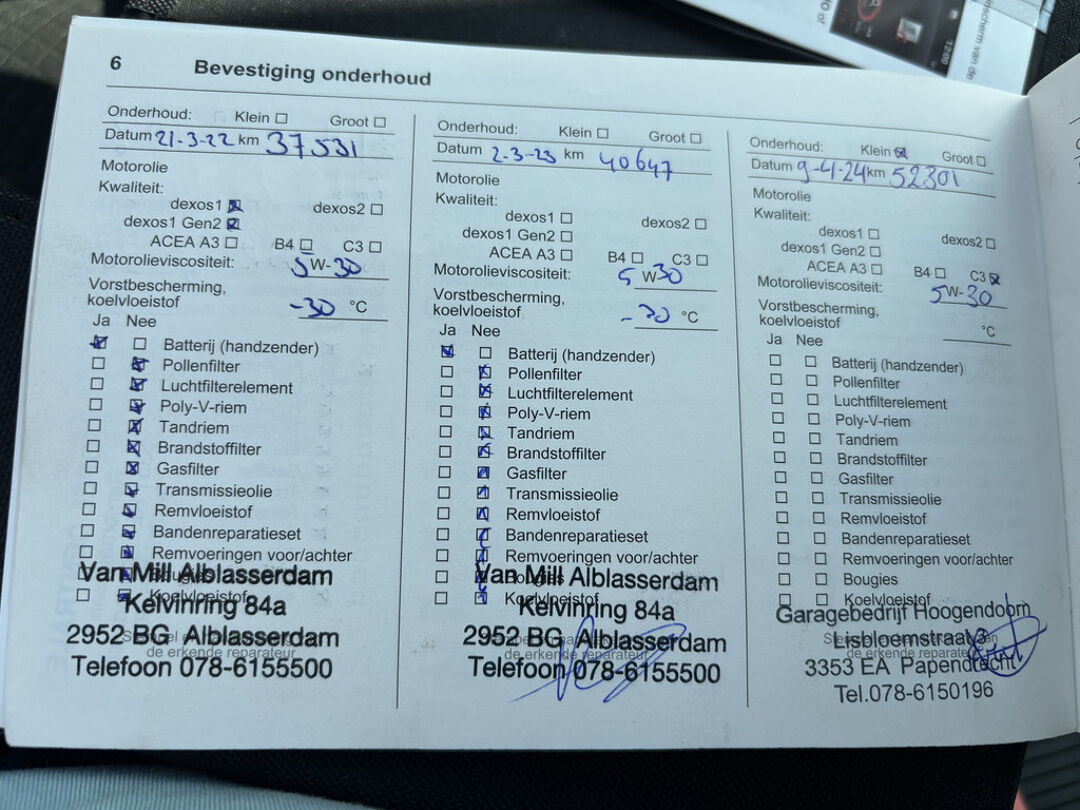 6 Bevestiging onderhoud
Onderhoud: Klein Groot
Datum 21-3-22 km 37531
Motorolie
Kwaliteit:
dexos1 dexos2
dexos1 Gen2
ACEA A3 B4 C3
Motorolieviscositeit: 5W-30
Vorstbescherming,
koelvloeistof -30 °C
Ja Nee
Batterij (handzender)
Pollenfilter
Luchtfilterelement
Poly-V-riem
Tandriem
Brandstoffilter
Gasfilter
Transmissieolie
Remvloeistof
Bandenreparatieset
Remvoeringen voor/achter
Bougies
Koelvloeistof
Van Mill Alblasserdam
Kelvinring 84a
2952 BG Alblasserdam
de erkende reparateur
Telefoon 078-6155500
Onderhoud: Klein Groot
Datum 2-3-23 km 40647
Motorolie
Kwaliteit:
dexos1 dexos2
dexos1 Gen2
ACEA A3 B4 C3
Motorolieviscositeit: 5W30
Vorstbescherming,
koelvloeistof -30 °C
Ja Nee
Batterij (handzender)
Pollenfilter
Luchtfilterelement
Poly-V-riem
Tandriem
Brandstoffilter
Gasfilter
Transmissieolie
Remvloeistof
Bandenreparatieset
Remvoeringen voor/achter
Bougies
Koelvloeistof
Van Mill Alblasserdam
Kelvinring 84a
2952 BG Alblasserdam
de erkende reparateur
Telefoon 078-6155500
Onderhoud: Klein Groot
Datum 9-4-24 km 52301
Motorolie
Kwaliteit:
dexos1 dexos2
dexos1 Gen2
ACEA A3 B4 C3
Motorolieviscositeit: 5W-30
Vorstbescherming,
koelvloeistof °C
Ja Nee
Batterij (handzender)
Pollenfilter
Luchtfilterelement
Poly-V-riem
Tandriem
Brandstoffilter
Gasfilter
Transmissieolie
Remvloeistof
Bandenreparatieset
Remvoeringen voor/achter
Bougies
Koelvloeistof
Garagebedrijf Hoogendoorn
Lisbloemstraat 3
de erkende reparateur
3353 EA Papendrecht
Tel.078-6150196